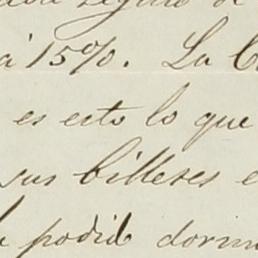 seguro de
á 15%. La C
es esto lo que
sus billetes e
podid dormi